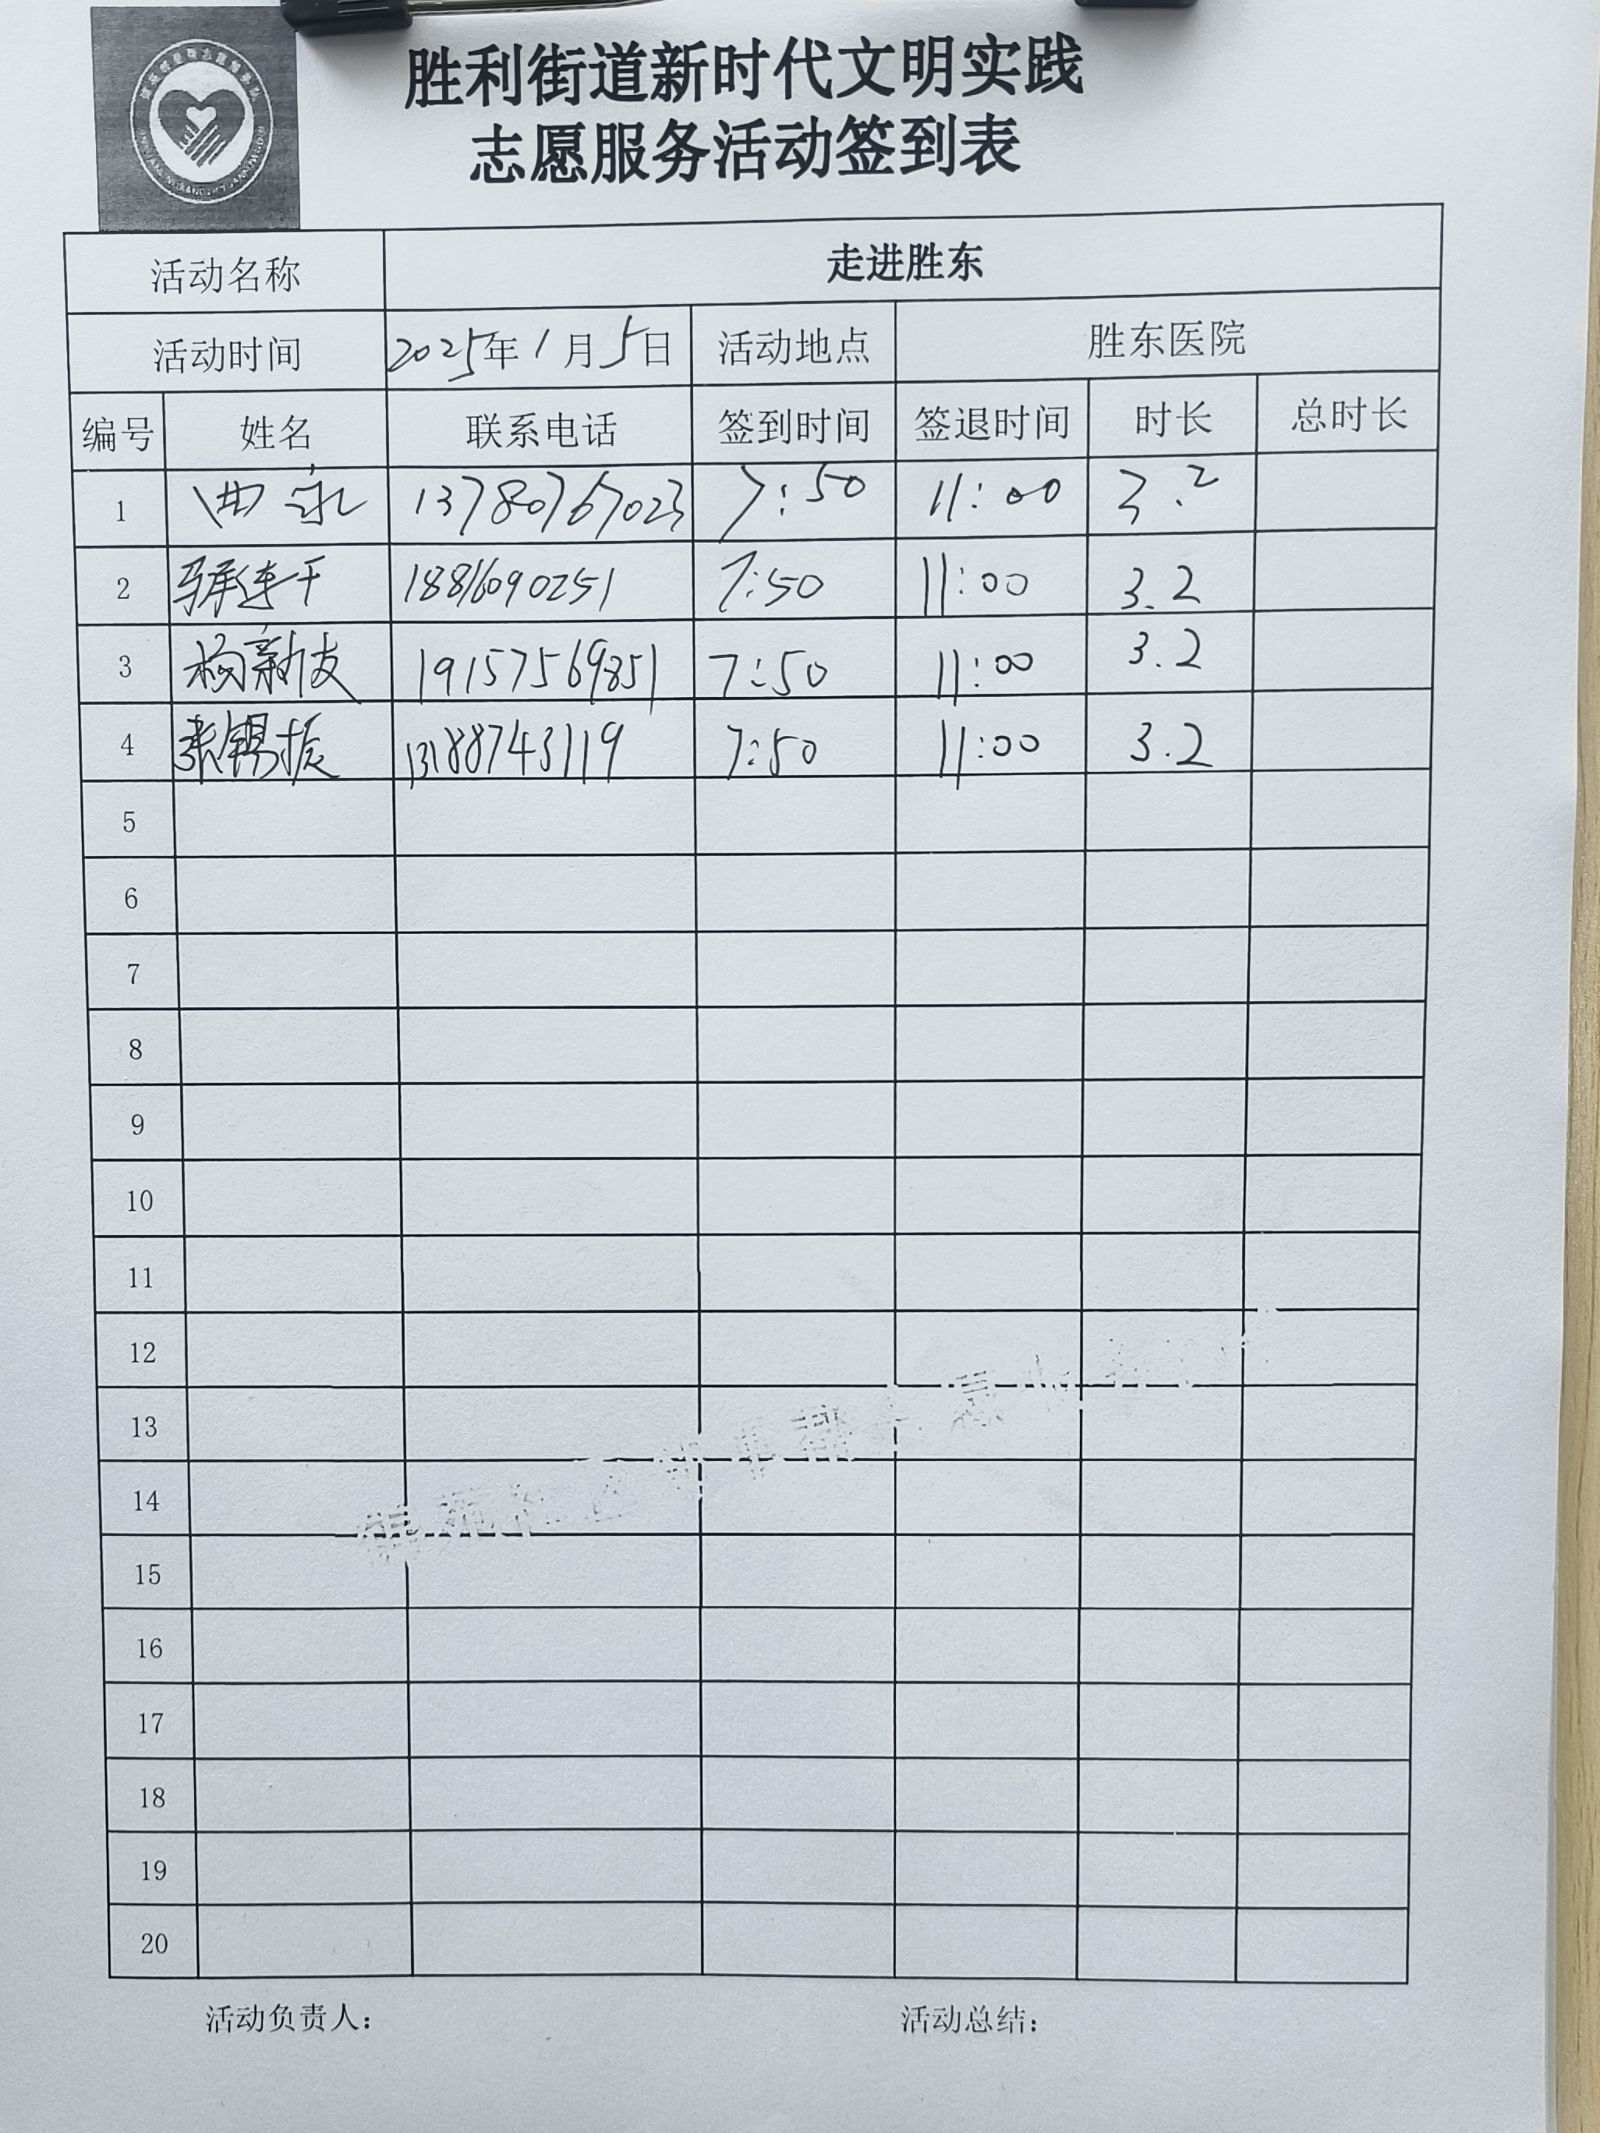 胜利街道新时代文明实践
志愿服务活动签到表
活动名称 走进胜东
活动时间 2025年1月5日 活动地点 胜东医院
编号 姓名 联系电话 签到时间 签退时间 时长 总时长
1 13780767023 7:50 11:00 3.2
2 18816090251 7:50 11:00 3.2
3 杨新友 19157569851 7:50 11:00 3.2
4 张锡振 13188743119 7:50 11:00 3.2
5
6
7
8
9
10
11
12
13
14
15
16
17
18
19
20
活动负责人： 活动总结：